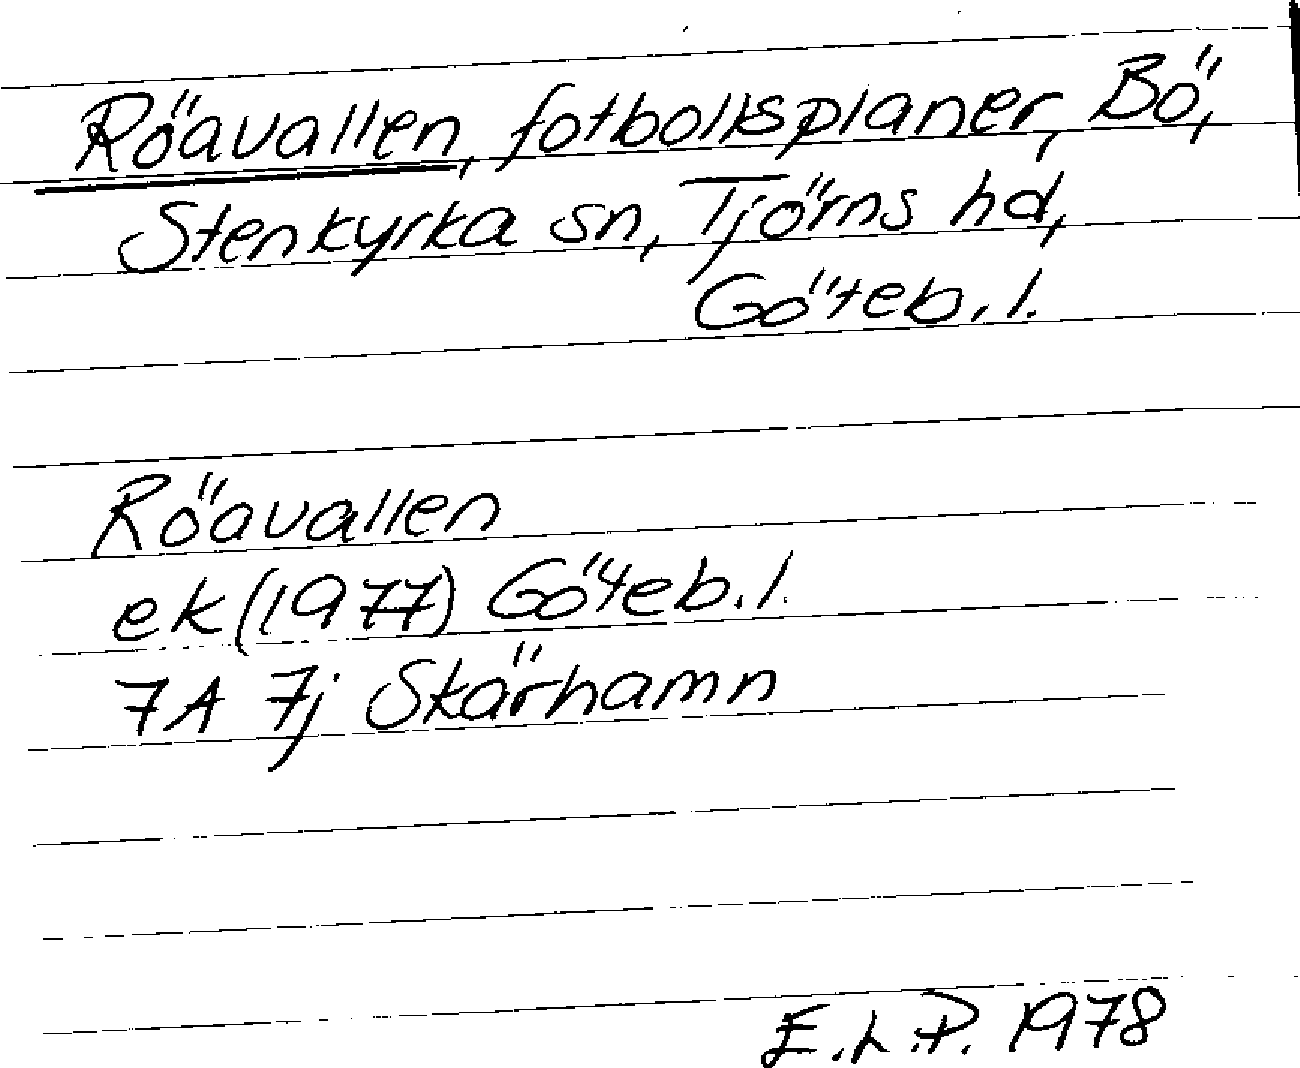 Röavallen, fotbollsplaner, Bö,
Stenkyrka sn, Tjörns hd,
Göteb. l.
Röavallen
ek (1977) Göteb. l.
7A 7j Skärhamn
E.L.P. 1978